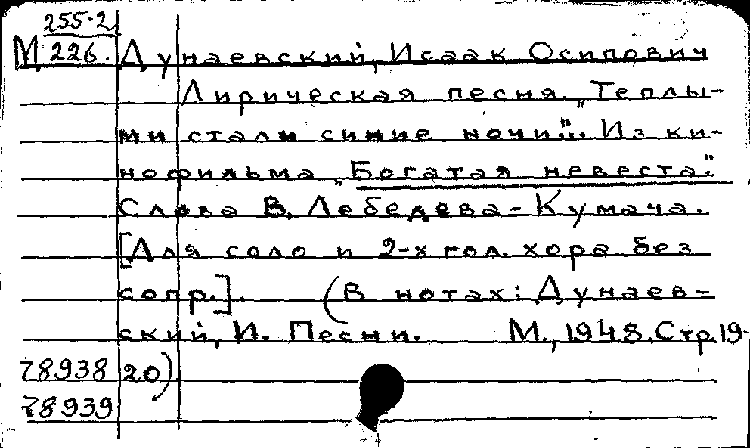 255-2
М 226. Дунаевский, Исаак Осипович
Лирическая песня. „Теплы-
ми стали синие ночи"... Из ки-
нофильма „Богатая невеста".
Слова В. Лебедева-Кумача.
[Для соло и 2-х гол. хора без
сопр.]. (В нотах: Дунаев-
ский, И. Песни. М., 1948. Стр. 19-
78938 20)
78939